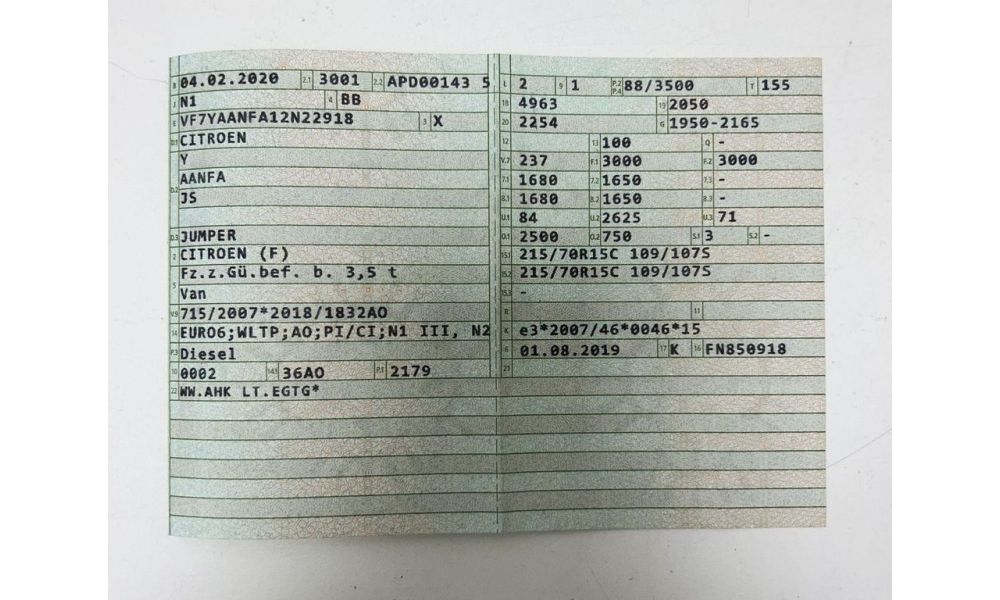 B 04.02.2020 2.1 3001 2.2 APD00143 5
J N1 4 BB
E VF7YAANFA12N22918 3 X
D.1 CITROEN
Y
D.2 AANFA
JS
D.3 JUMPER
2 CITROEN (F)
5 Fz.z.Gü.bef. b. 3,5 t
Van
V.9 715/2007*2018/1832AO
14 EURO6;WLTP;AO;PI/CI;N1 III, N2
P.3 Diesel
10 0002 14.1 36AO P.1 2179
22 WW.AHK LT.EGTG*
L 2 9 1 P.2 P.4 88/3500 T 155
18 4963 19 2050
20 2254 G 1950-2165
12 13 100 Q -
V.7 237 F.1 3000 F.2 3000
7.1 1680 7.2 1650 7.3 -
8.1 1680 8.2 1650 8.3 -
U.1 84 U.2 2625 U.3 71
O.1 2500 O.2 750 S.1 3 S.2 -
15.1 215/70R15C 109/107S
15.2 215/70R15C 109/107S
15.3 -
R 11
K e3*2007/46*0046*15
6 01.08.2019 17 K 16 FN850918
21